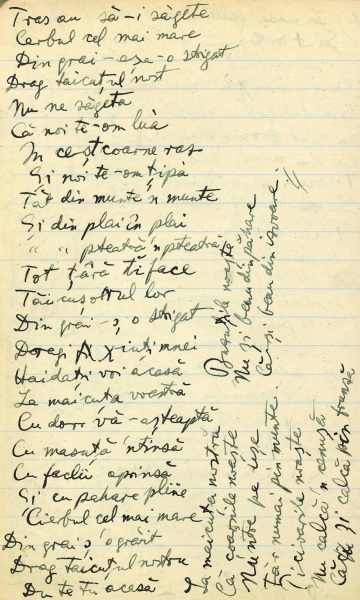 Tras au să-i săgete
Cerbul cel mai mare
Din grai-așa-o strigat
Drag tăicuțul nost
Nu ne săgeta
Că noi te-om lua
În ceșt coarne ras
Și noi te-om țipa
Tăt din munte'n munte
Și din plai în plai
" " pteatră'n pteatră
Tot țără ti face
Tăicușortul lor
Din grai-ș, o strigat
Dragi
Haidați voi acasă
La măicuța voastră
Cu dorr vă-așteaptă
Cu masuță'ntinsă
Cu faclii aprinsă
Și cu pahare pline
Cierbul cel mai mare
Din grai ș'o grăit
Drag tăicuțul nostru
Du te tu acasă
La măicuța nostră
Că coarnile noaște
Nu ntre pe ușe
Făr numai pin munte
Și cioarile noaște
Nu calcă'n cenușă
Că și calcă pin frunsă
Buzuțile noaște
Nu și beau din păhare
Că și beau din izvoare